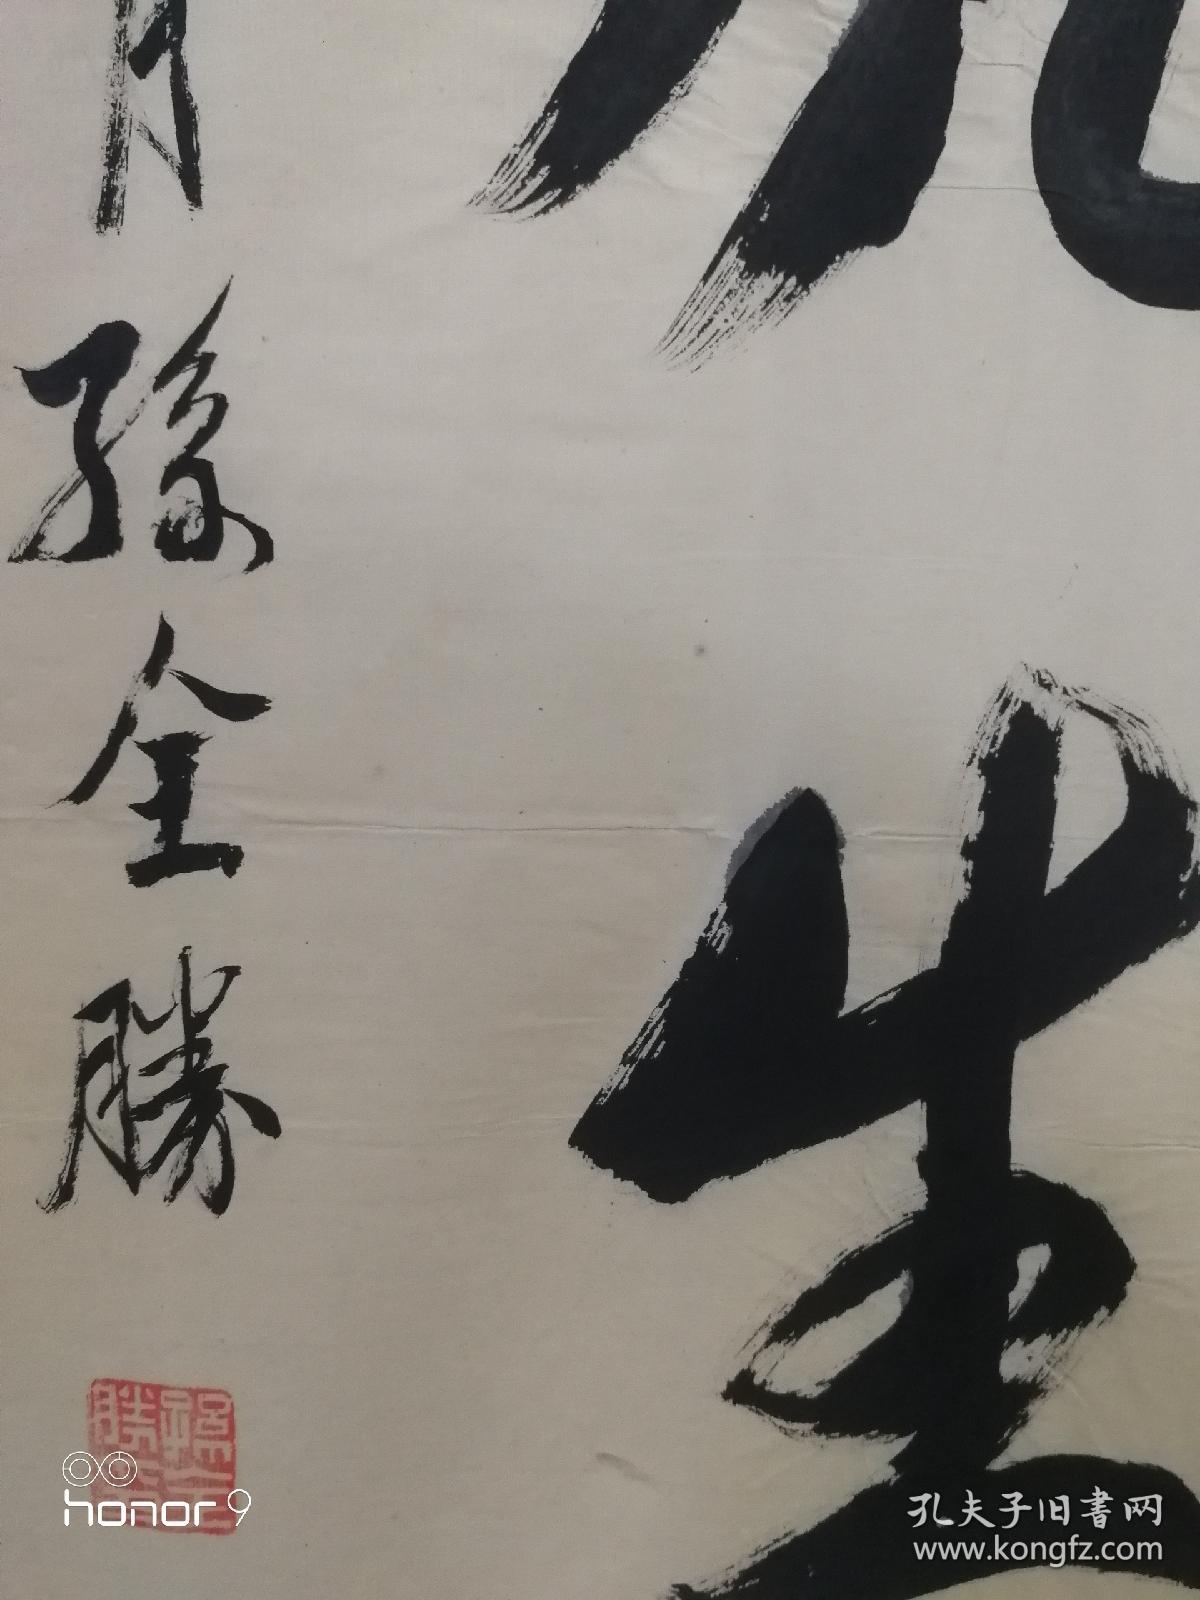 生
月
孫全勝
honor 9
孔夫子旧書网
www.kongfz.com